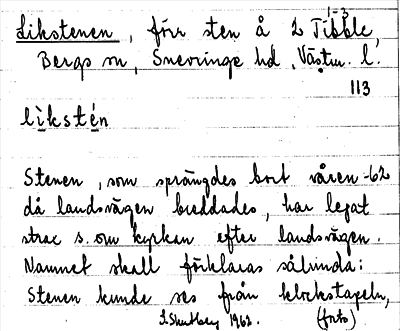 Likstenen, förr sten å 2 Tibble, 1-3
Bergs sn, Snevringe hd, Västm. l.
113
lìkstén
Stenen, som sprängdes bort våren -62
då landsvägen breddades, har legat
strax s. om kyrkan efter landsvägen.
Namnet skall förklaras sålunda:
Stenen kunde ses från klockstapeln,
1962. (foto)